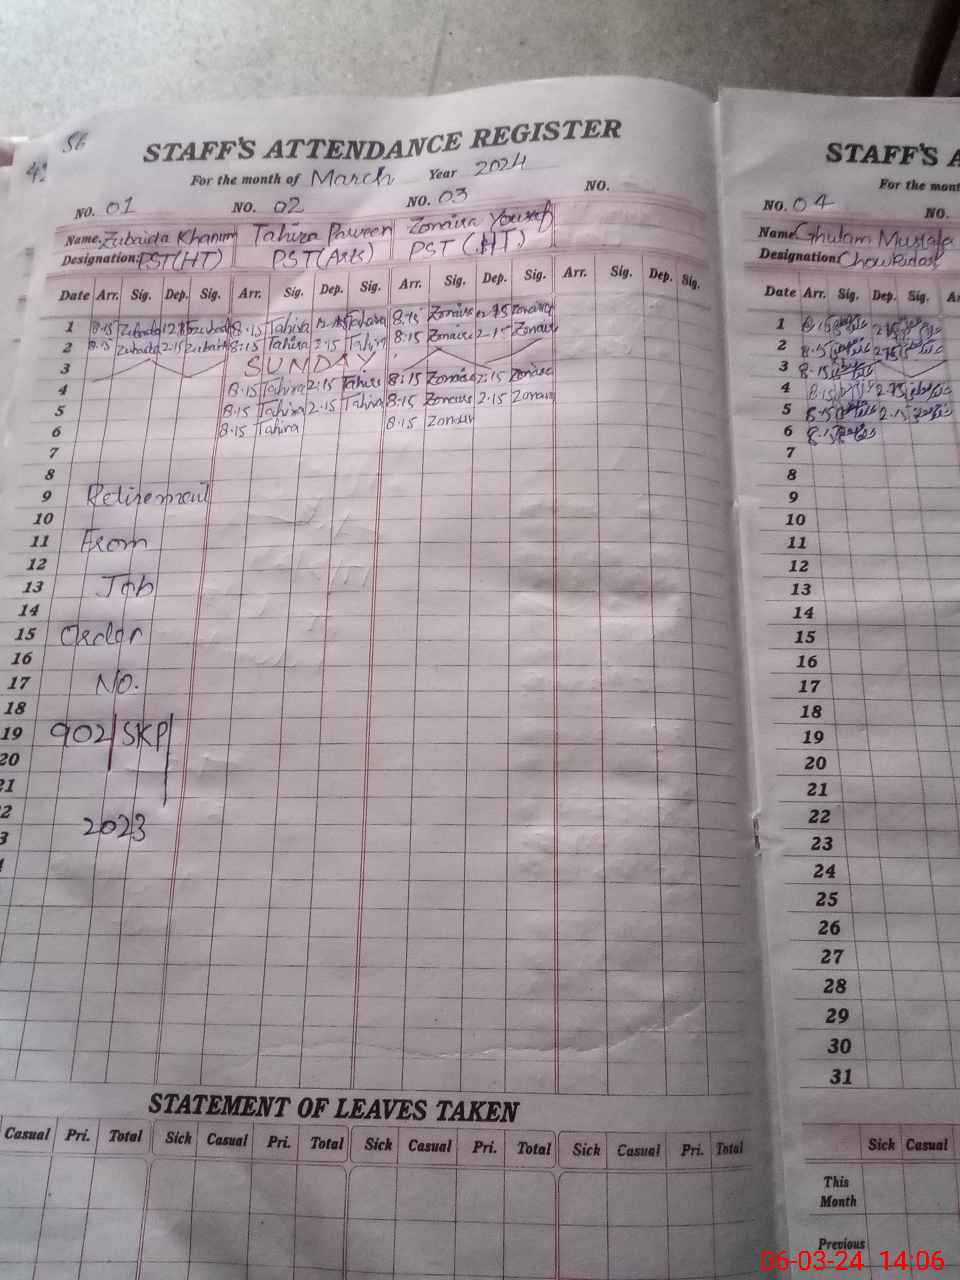 56
STAFF'S ATTENDANCE REGISTER
For the month of March Year 2024
NO. 01 NO. 02 NO. 03 NO.
Name. Zubaida Khanum Tahira Parveen Zonaira Yousaf
Designation: PST(HT) PST(Arts) PST (HT)
Date Arr. Sig. Dep. Sig. Arr. Sig. Dep. Sig. Arr. Sig. Dep. Sig. Arr. Sig. Dep. Sig.
1 8.15 Zubaida Zubaida 8.15 Tahira Tahira 8.15 Zonaira Zonaira
2 8.15 Zubaida 2.15 Zubaida 8:15 Tahira 2.15 Tahira 8.15 Zonaira 2.15 Zonaira
3 SUNDAY
4 8.15 Tahira 2:15 Tahira 8:15 Zonaira 2:15 Zonaira
5 8.15 Tahira 2.15 Tahira 8.15 Zonaira 2.15 Zonaira
6 8.15 Tahira 8.15 Zonaira
7
8
9 Retirement
10
11 From
12
13 Job
14
15 Order
16
17 No.
18
19 902/SKP/
20
21
2
2023
3
STATEMENT OF LEAVES TAKEN
Casual Pri. Total Sick Casual Pri. Total Sick Casual Pri. Total Sick Casual Pri. Total
STAFF'S A
For the mont
NO. 04 NO.
Name. Ghulam Mustafa
Designation: Chowkidar
Date Arr. Sig. Dep. Sig. Ar
1 8.15 2.15
2 8.15 2.15
3 8.15
4 8.15 2.15
5 8.15 2.15
6 8.15
7
8
9
10
11
12
13
14
15
16
17
18
19
20
21
22
23
24
25
26
27
28
29
30
31
Sick Casual
This
Month
Previous
06-03-24 14:06